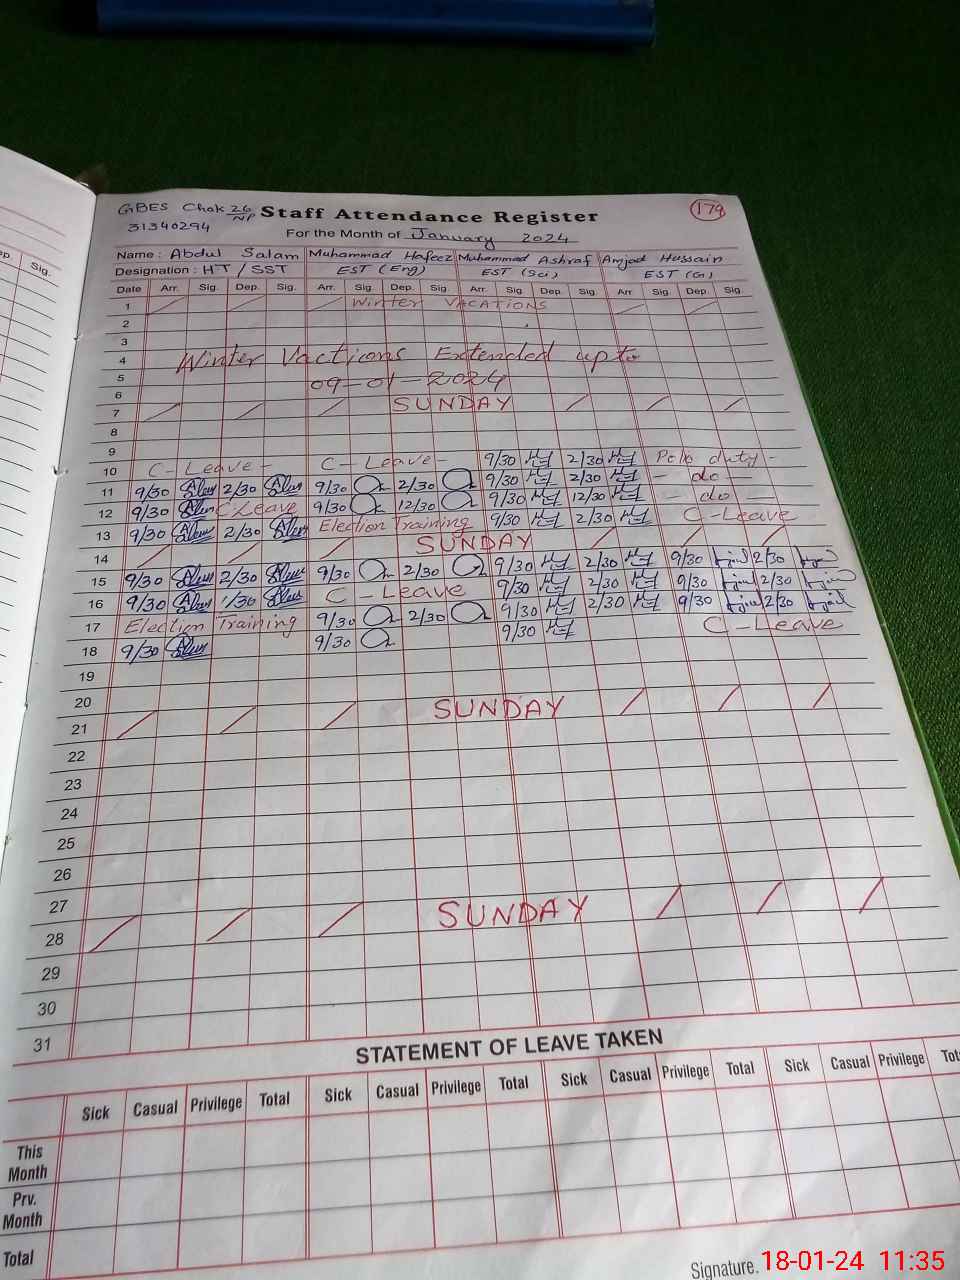 GBES Chak 26/NP Staff Attendance Register 179
31340294 For the Month of January 2024
Name : Abdul Salam Muhammad Hafeez Muhammad Ashraf Amjad Hussain
Designation : HT / SST EST (Eng) EST (Sci) EST (G)
Date Arr. Sig. Dep. Sig. Arr. Sig. Dep. Sig. Arr. Sig. Dep. Sig. Arr. Sig. Dep. Sig.
1 Winter VACATIONS
2
3
4 Winter Vactions Extended up to
5 09-01-2024
6
7 SUNDAY
8
9
10 C-Leave- C-Leave- 9/30 2/30 Polo duty-
11 9/30 2/30 9/30 2/30 9/30 2/30 - do -
12 9/30 C Leave 9/30 12/30 9/30 12/30 - do -
13 9/30 2/30 Election Training 9/30 2/30 C-Leave
14 SUNDAY
15 9/30 2/30 9/30 2/30 9/30 2/30 9/30 2/30
16 9/30 1/30 C-Leave 9/30 2/30 9/30 2/30
17 Election Training 9/30 2/30 9/30 2/30 9/30 2/30
18 9/30 9/30 9/30 C-Leave
19
20
21 SUNDAY
22
23
24
25
26
27
28 SUNDAY
29
30
31
STATEMENT OF LEAVE TAKEN
Sick Casual Privilege Total Sick Casual Privilege Total Sick Casual Privilege Total Sick Casual Privilege
This
Month
Prv.
Month
Total
Signature.
18-01-24 11:35
dep. Sig.